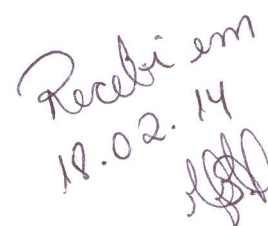 Recebi em
18.02.14